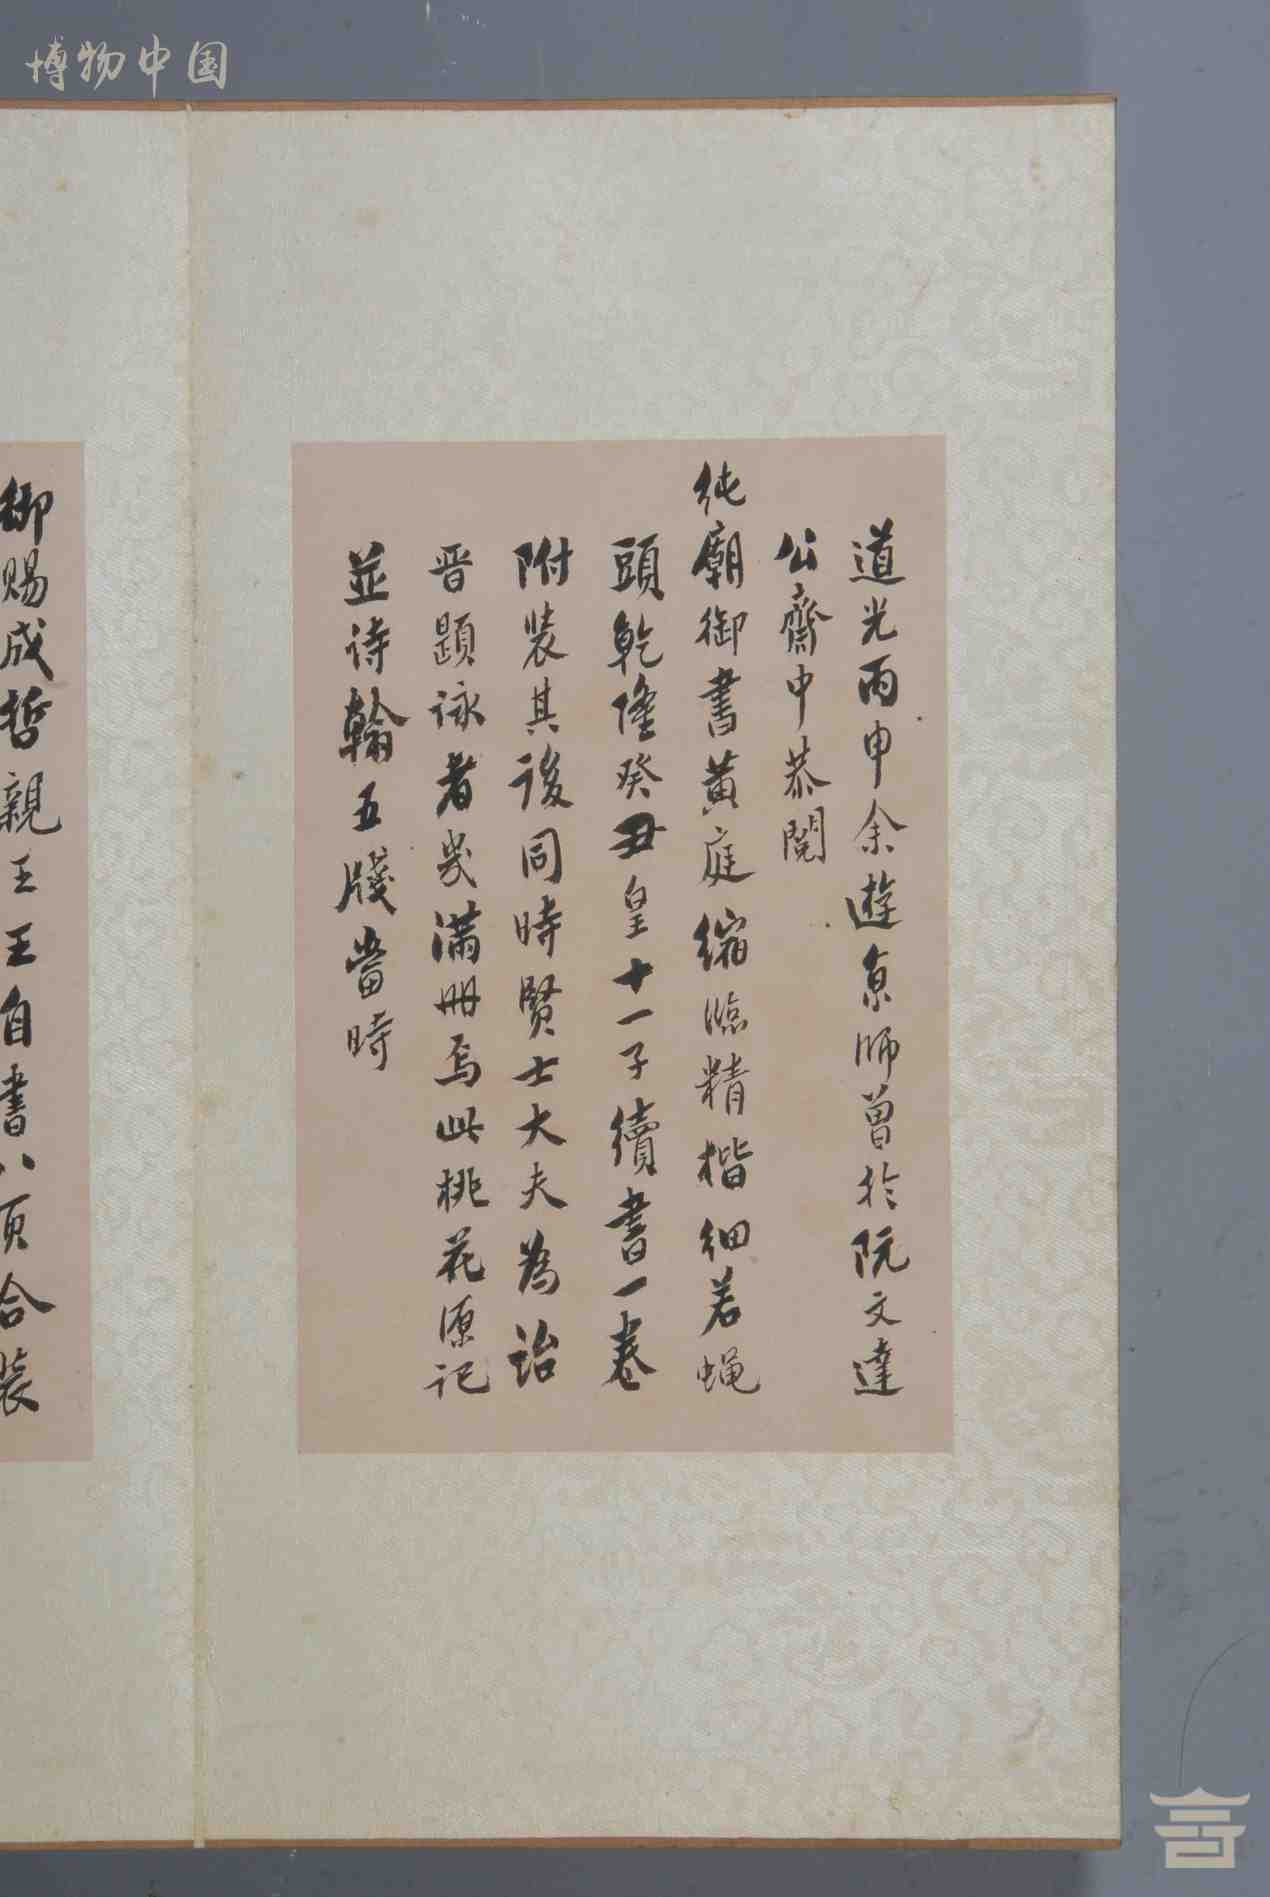 博物中国
道光丙申余遊京師曾於阮文達
公齋中恭閱
純廟御書黃庭縮臨精楷細若蝇
頭乾隆癸丑皇十一子續書一卷
附裝其後同時賢士大夫為詒
晋題詠者幾滿冊焉此桃花源記
並诗翰五牋當時
御賜成哲親王王自書八頁合裝